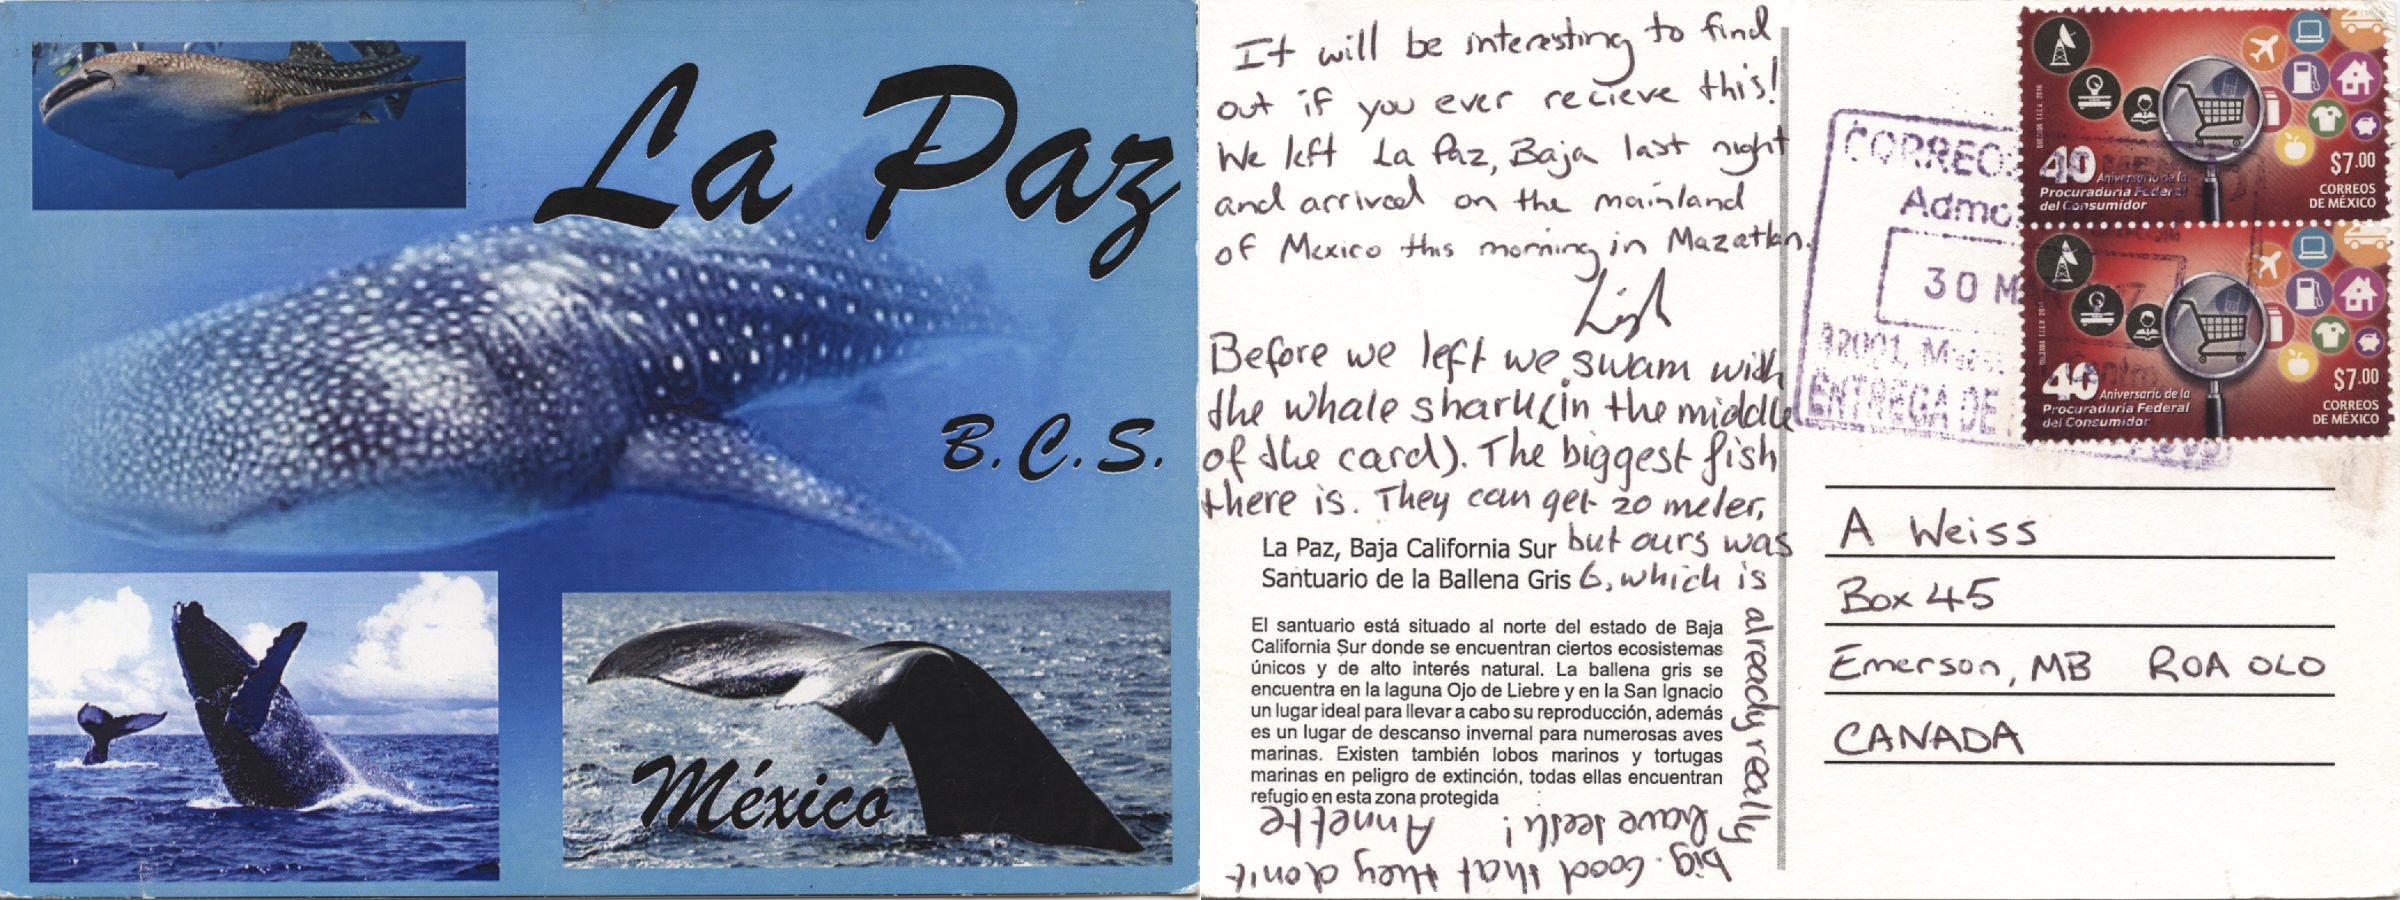 La Paz
B.C.S.
México
It will be interesting to find
out if you ever recieve this!
We left La Paz, Baja last night
and arrived on the mainland
of Mexico this morning in Mazatlan.
Before we left we swam with
the whale shark (in the middle
of the card). The biggest fish
there is. They can get 20 meter,
but ours was
6, which is
already really
big. Good that they don't
have teeth! Annette
La Paz, Baja California Sur
Santuario de la Ballena Gris
El santuario está situado al norte del estado de Baja
California Sur donde se encuentran ciertos ecosistemas
únicos y de alto interés natural. La ballena gris se
encuentra en la laguna Ojo de Liebre y en la San Ignacio
un lugar ideal para llevar a cabo su reproducción, además
es un lugar de descanso invernal para numerosas aves
marinas. Existen también lobos marinos y tortugas
marinas en peligro de extinción, todas ellas encuentran
refugio en esta zona protegida
CORREOS
Admo
30 M
ENTREGA DE
40 Aniversario de la
Procuraduría Federal
del Consumidor
$7.00
CORREOS
DE MÉXICO
40 Aniversario de la
Procuraduría Federal
del Consumidor
$7.00
CORREOS
DE MÉXICO
A Weiss
Box 45
Emerson, MB R0A 0L0
CANADA